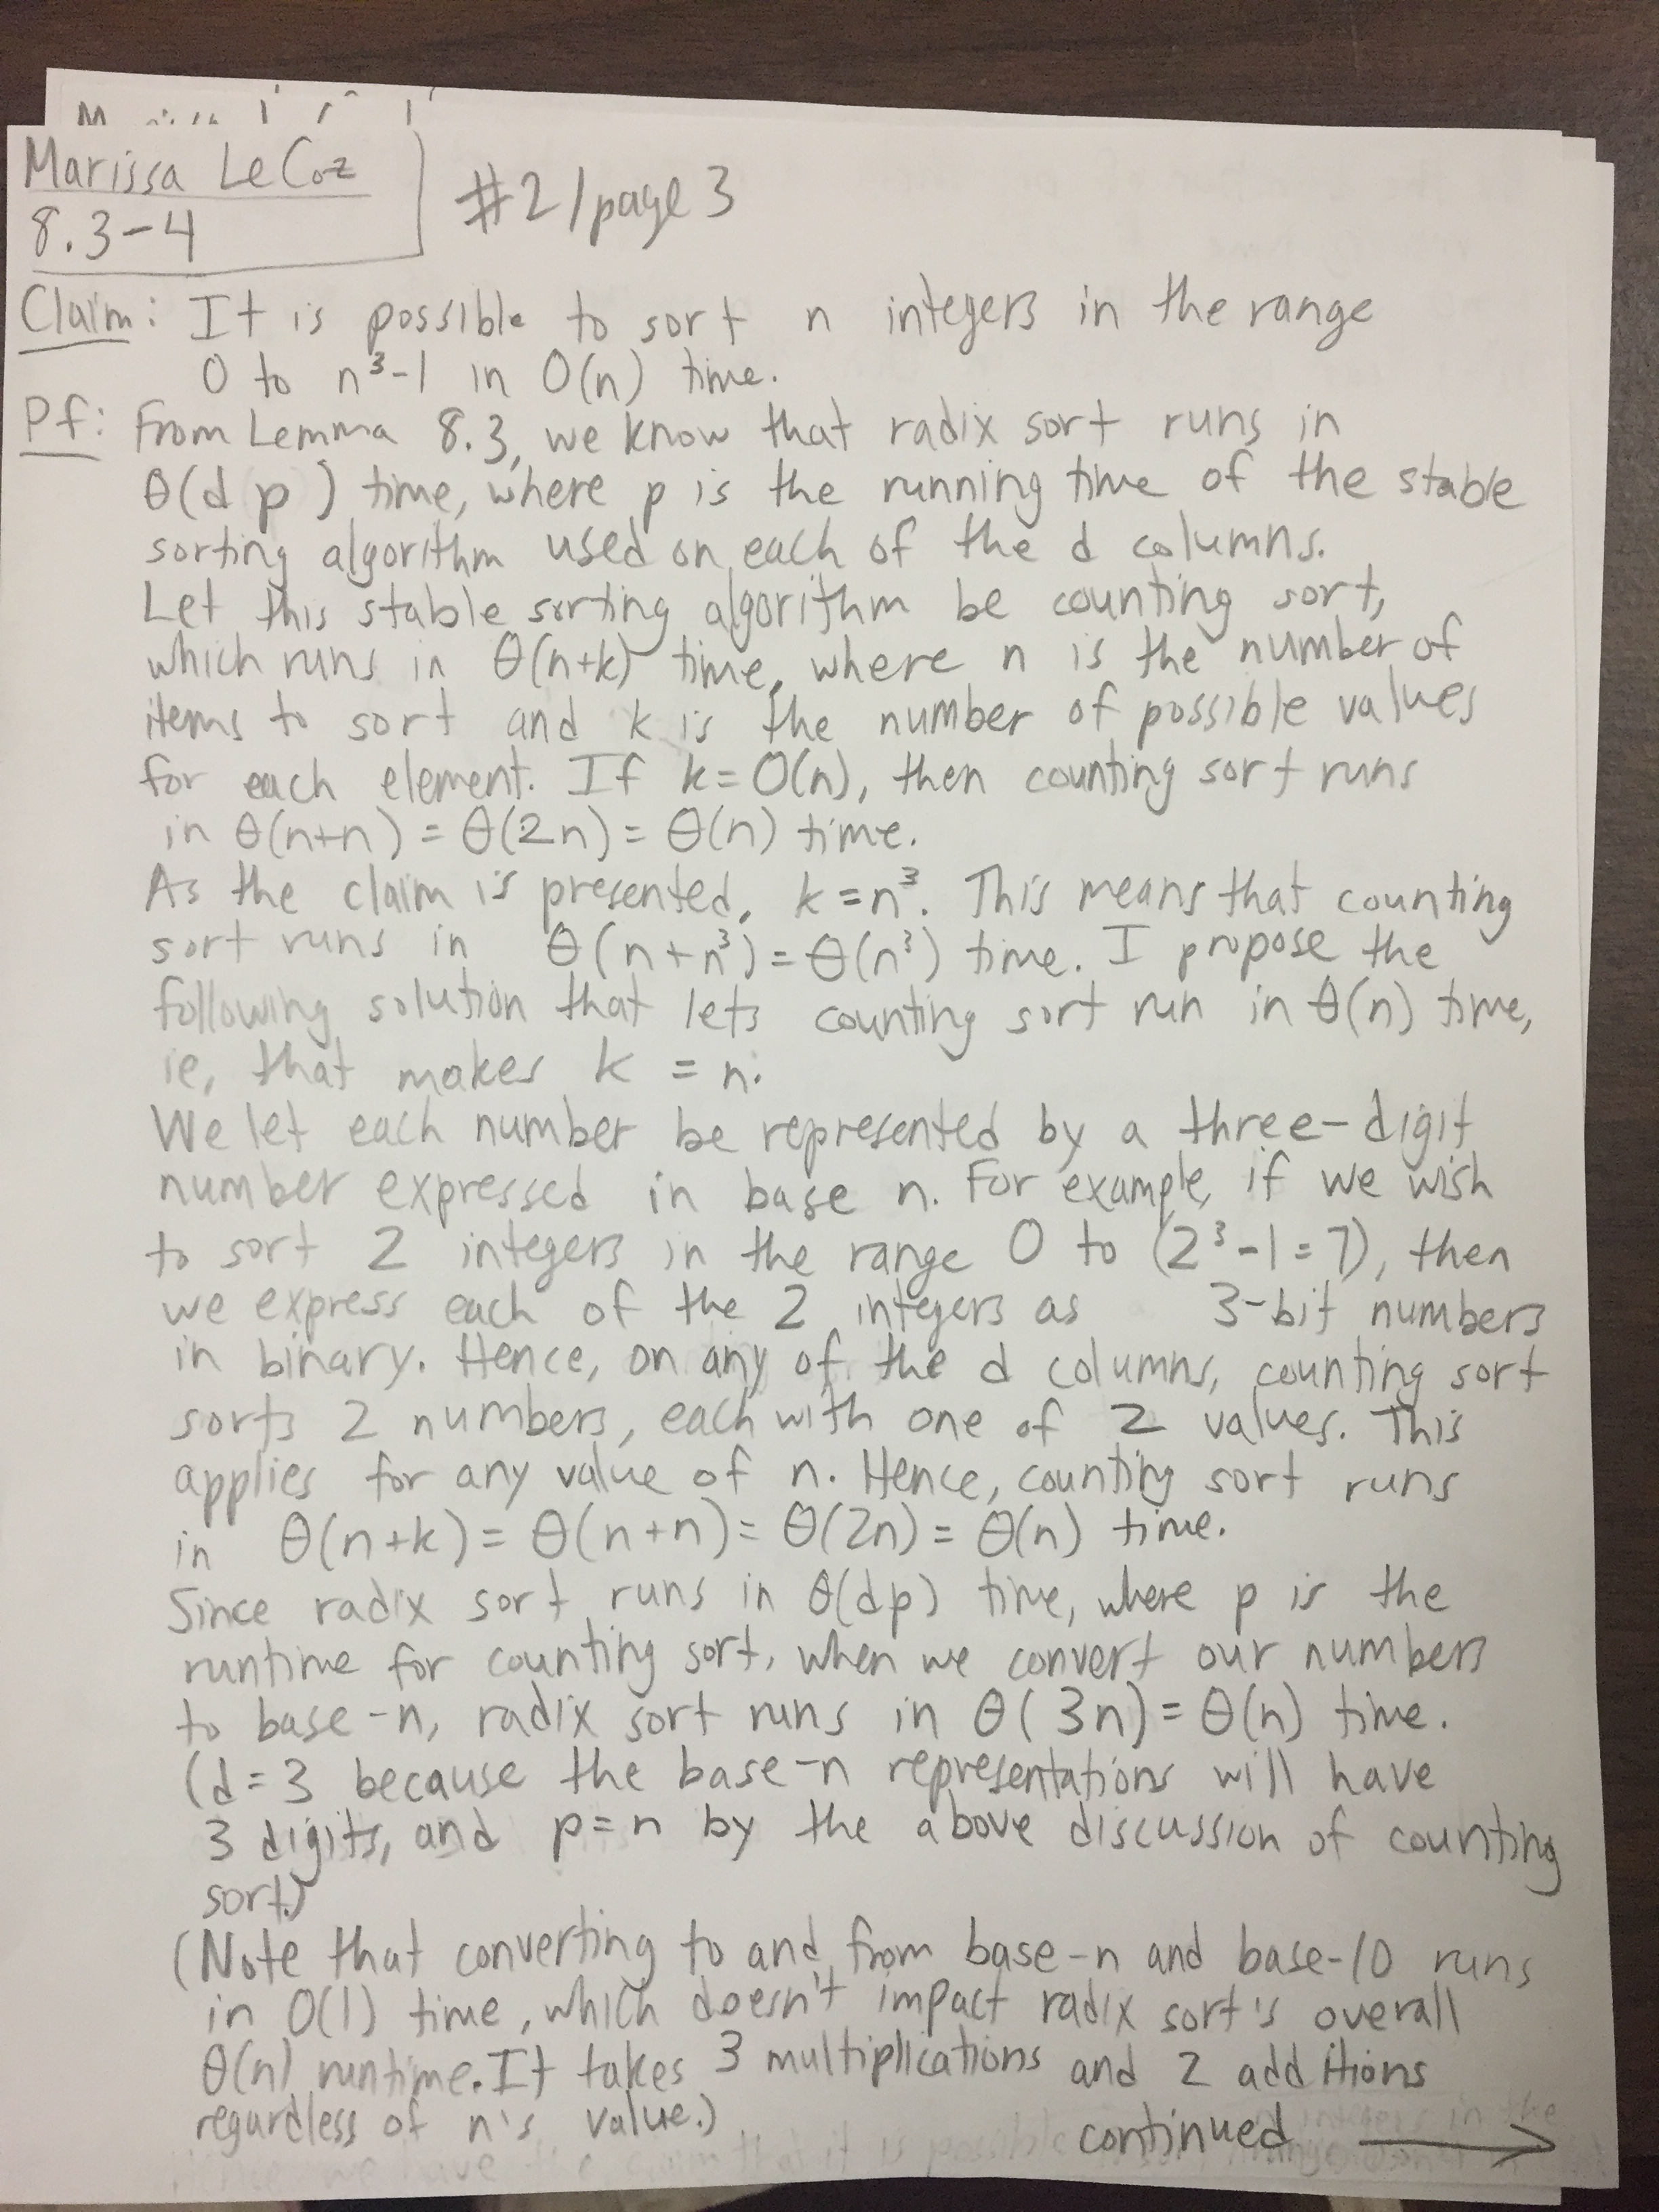 Marissa LeCoz
8.3-4
#2/page 3
Claim: It is possible to sort n integers in the range
0 to n³-1 in O(n) time.
Pf: From Lemma 8.3, we know that radix sort runs in
θ(d p) time, where p is the running time of the stable
sorting algorithm used on each of the d columns.
Let this stable sorting algorithm be counting sort,
which runs in θ(n+k) time, where n is the number of
items to sort and k is the number of possible values
for each element. If k=O(n), then counting sort runs
in θ(n+n) = θ(2n) = θ(n) time.
As the claim is presented, k=n³. This means that counting
sort runs in θ(n+n³)=θ(n³) time. I propose the
following solution that lets counting sort run in θ(n) time,
ie, that makes k = n:
We let each number be represented by a three-digit
number expressed in base n. For example, if we wish
to sort 2 integers in the range 0 to (2³-1=7), then
we express each of the 2 integers as 3-bit numbers
in binary. Hence, on any of the d columns, counting sort
sorts 2 numbers, each with one of 2 values. This
applies for any value of n. Hence, counting sort runs
in θ(n+k) = θ(n+n) = θ(2n) = θ(n) time.
Since radix sort runs in θ(dp) time, where p is the
runtime for counting sort, when we convert our numbers
to base-n, radix sort runs in θ(3n) = θ(n) time.
(d=3 because the base-n representations will have
3 digits, and p=n by the above discussion of counting
sort.)
(Note that converting to and from base-n and base-10 runs
in O(1) time, which doesn't impact radix sort's overall
θ(n) runtime. It takes 3 multiplications and 2 additions
regardless of n's value.)
continued →